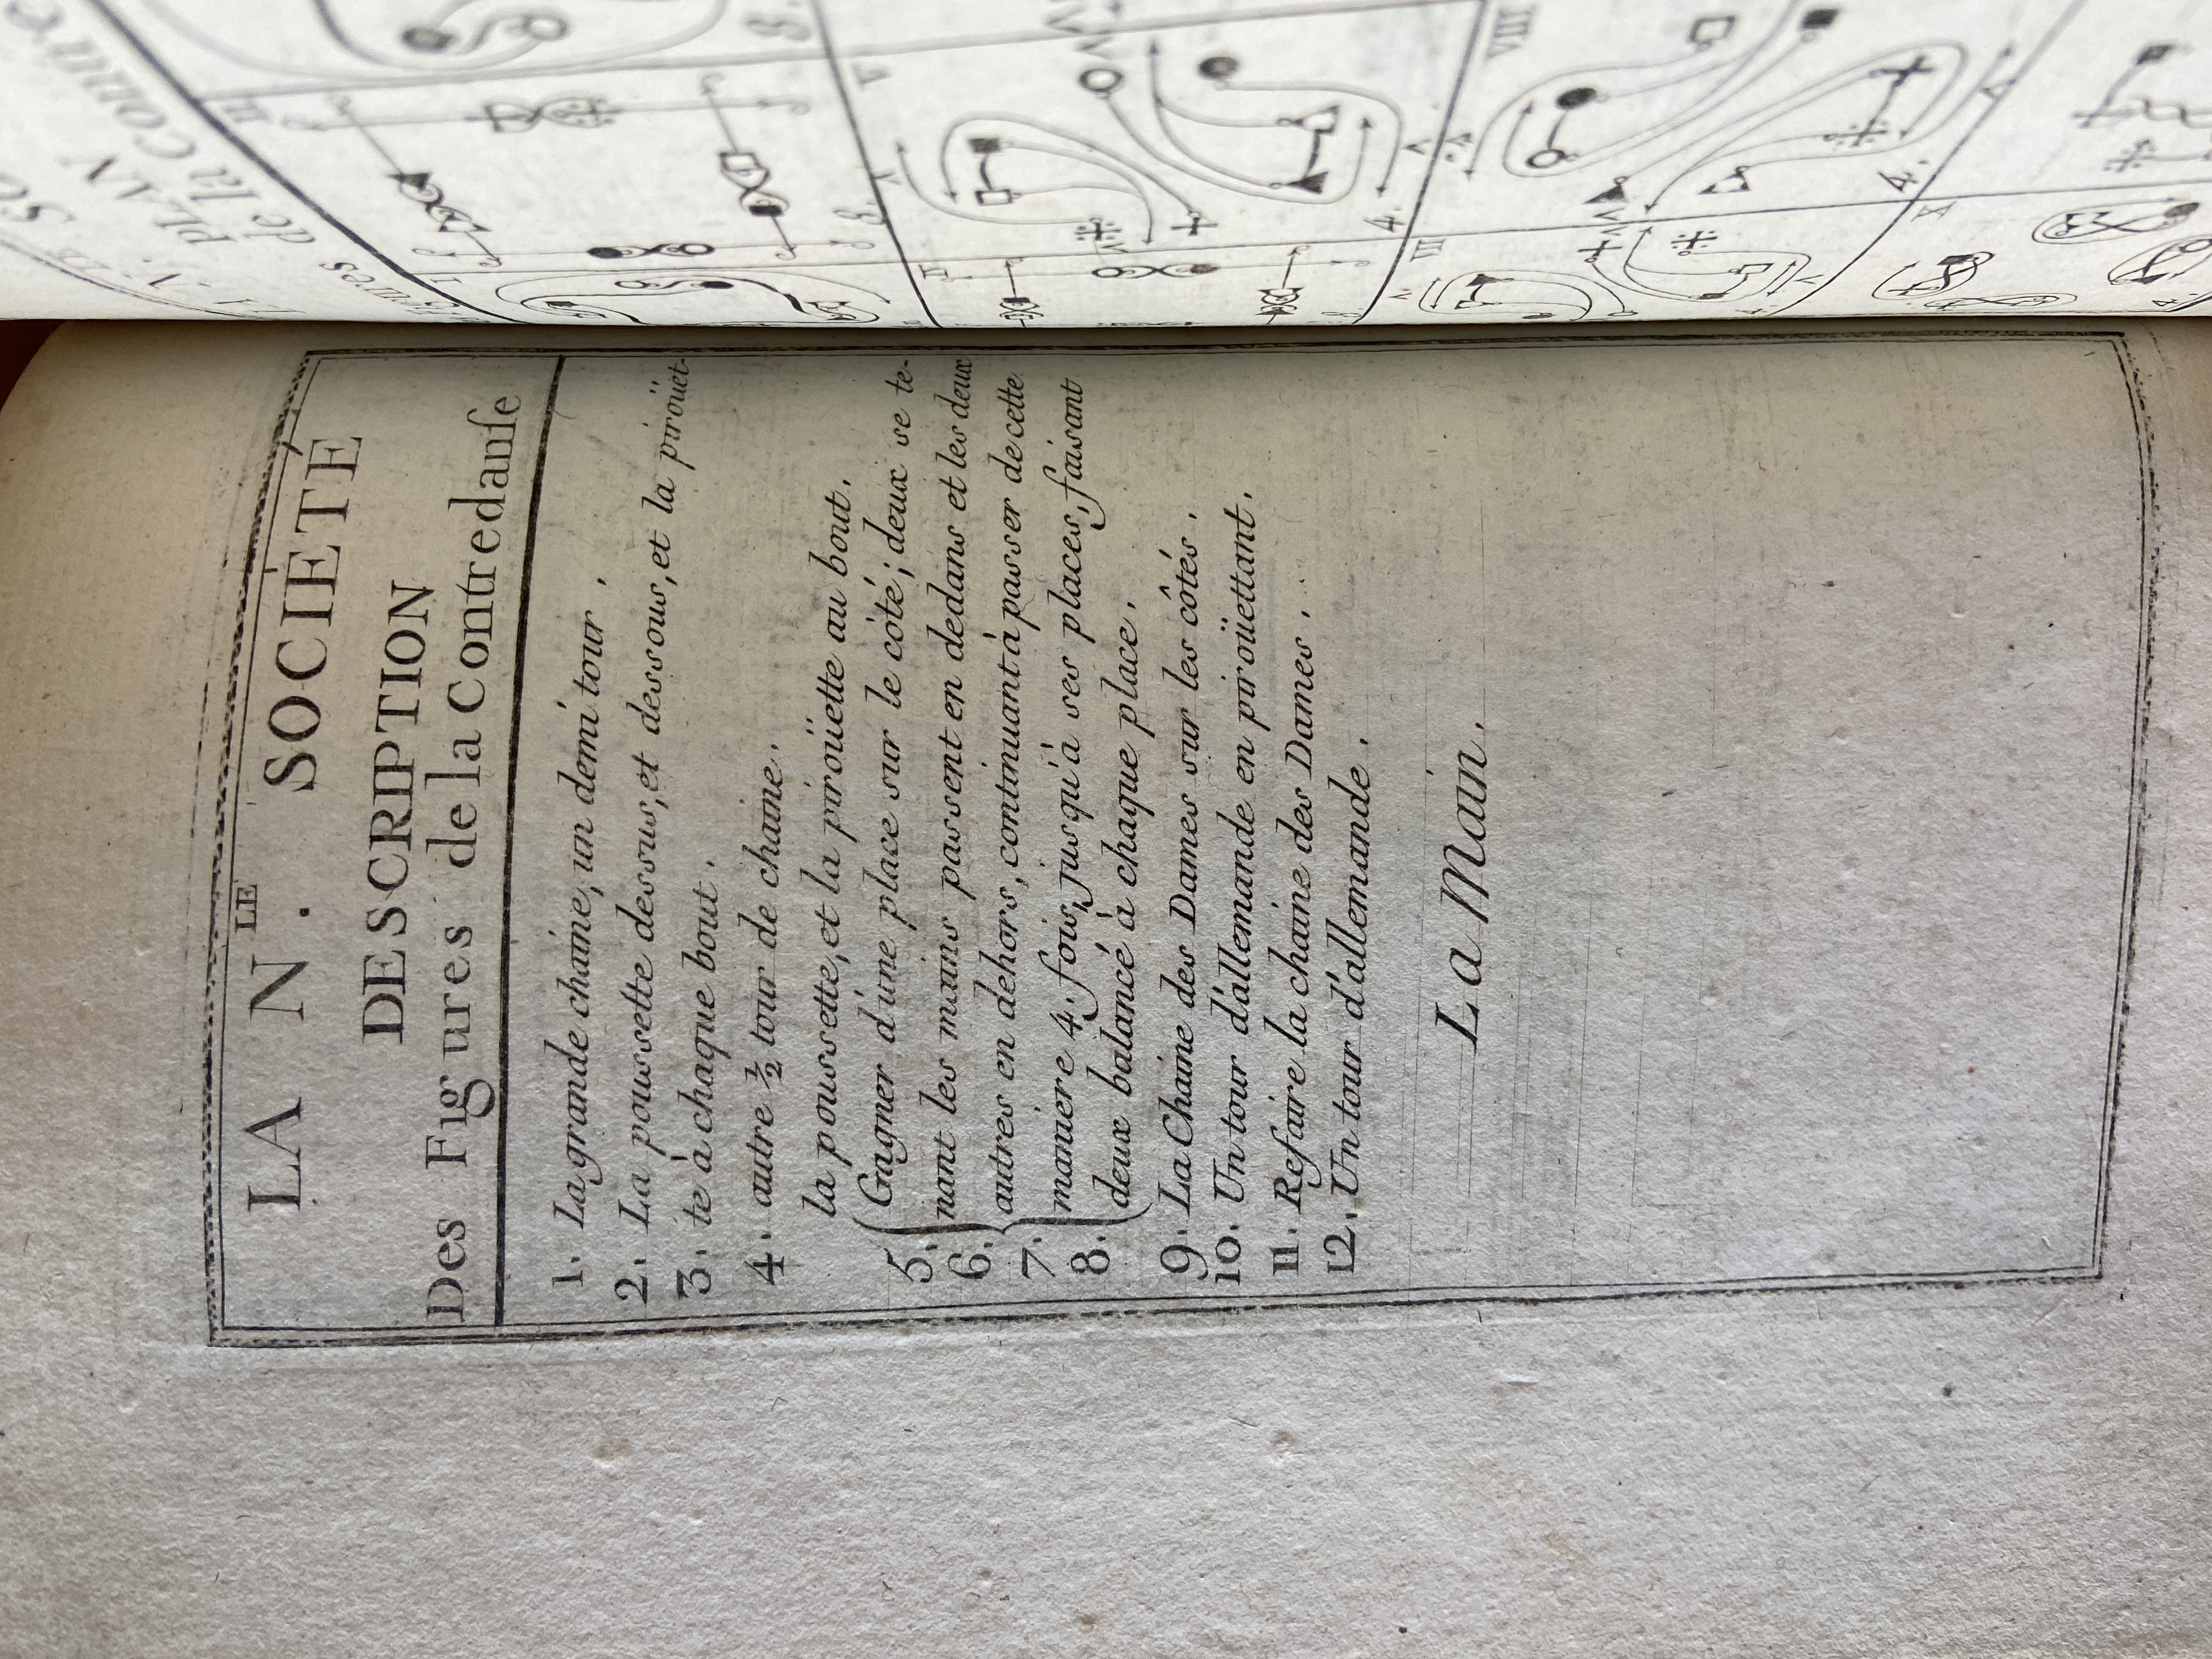 LA N.LE SOCIÉTÉ
DESCRIPTION
Des Figures de la Contredanſe
1. La grande chaine, un demi tour.
2. La poussette dessus, et dessous, et la piroüet-
3. te à chaque bout.
4. autre ½ tour de chaine.
la poussette, et la piroüette au bout.
5. Gagner d'une place sur le côté; deux se te-
6. nant les mains passent en dedans et les deux
autres en dehors, continuant à passer de cette
7. maniere 4. fois, jusqu'à ses places, faisant
8. deux balancé à chaque place.
9. La Chaine des Dames sur les côtés.
10. Un tour d'allemande en piroüettant.
11. Refaire la chaine des Dames.
12. Un tour d'allemande.
La Main.
PLAN
de la Contre
II
3.
I
V
4.
IV
3
VIII
4.
VII
X
4.